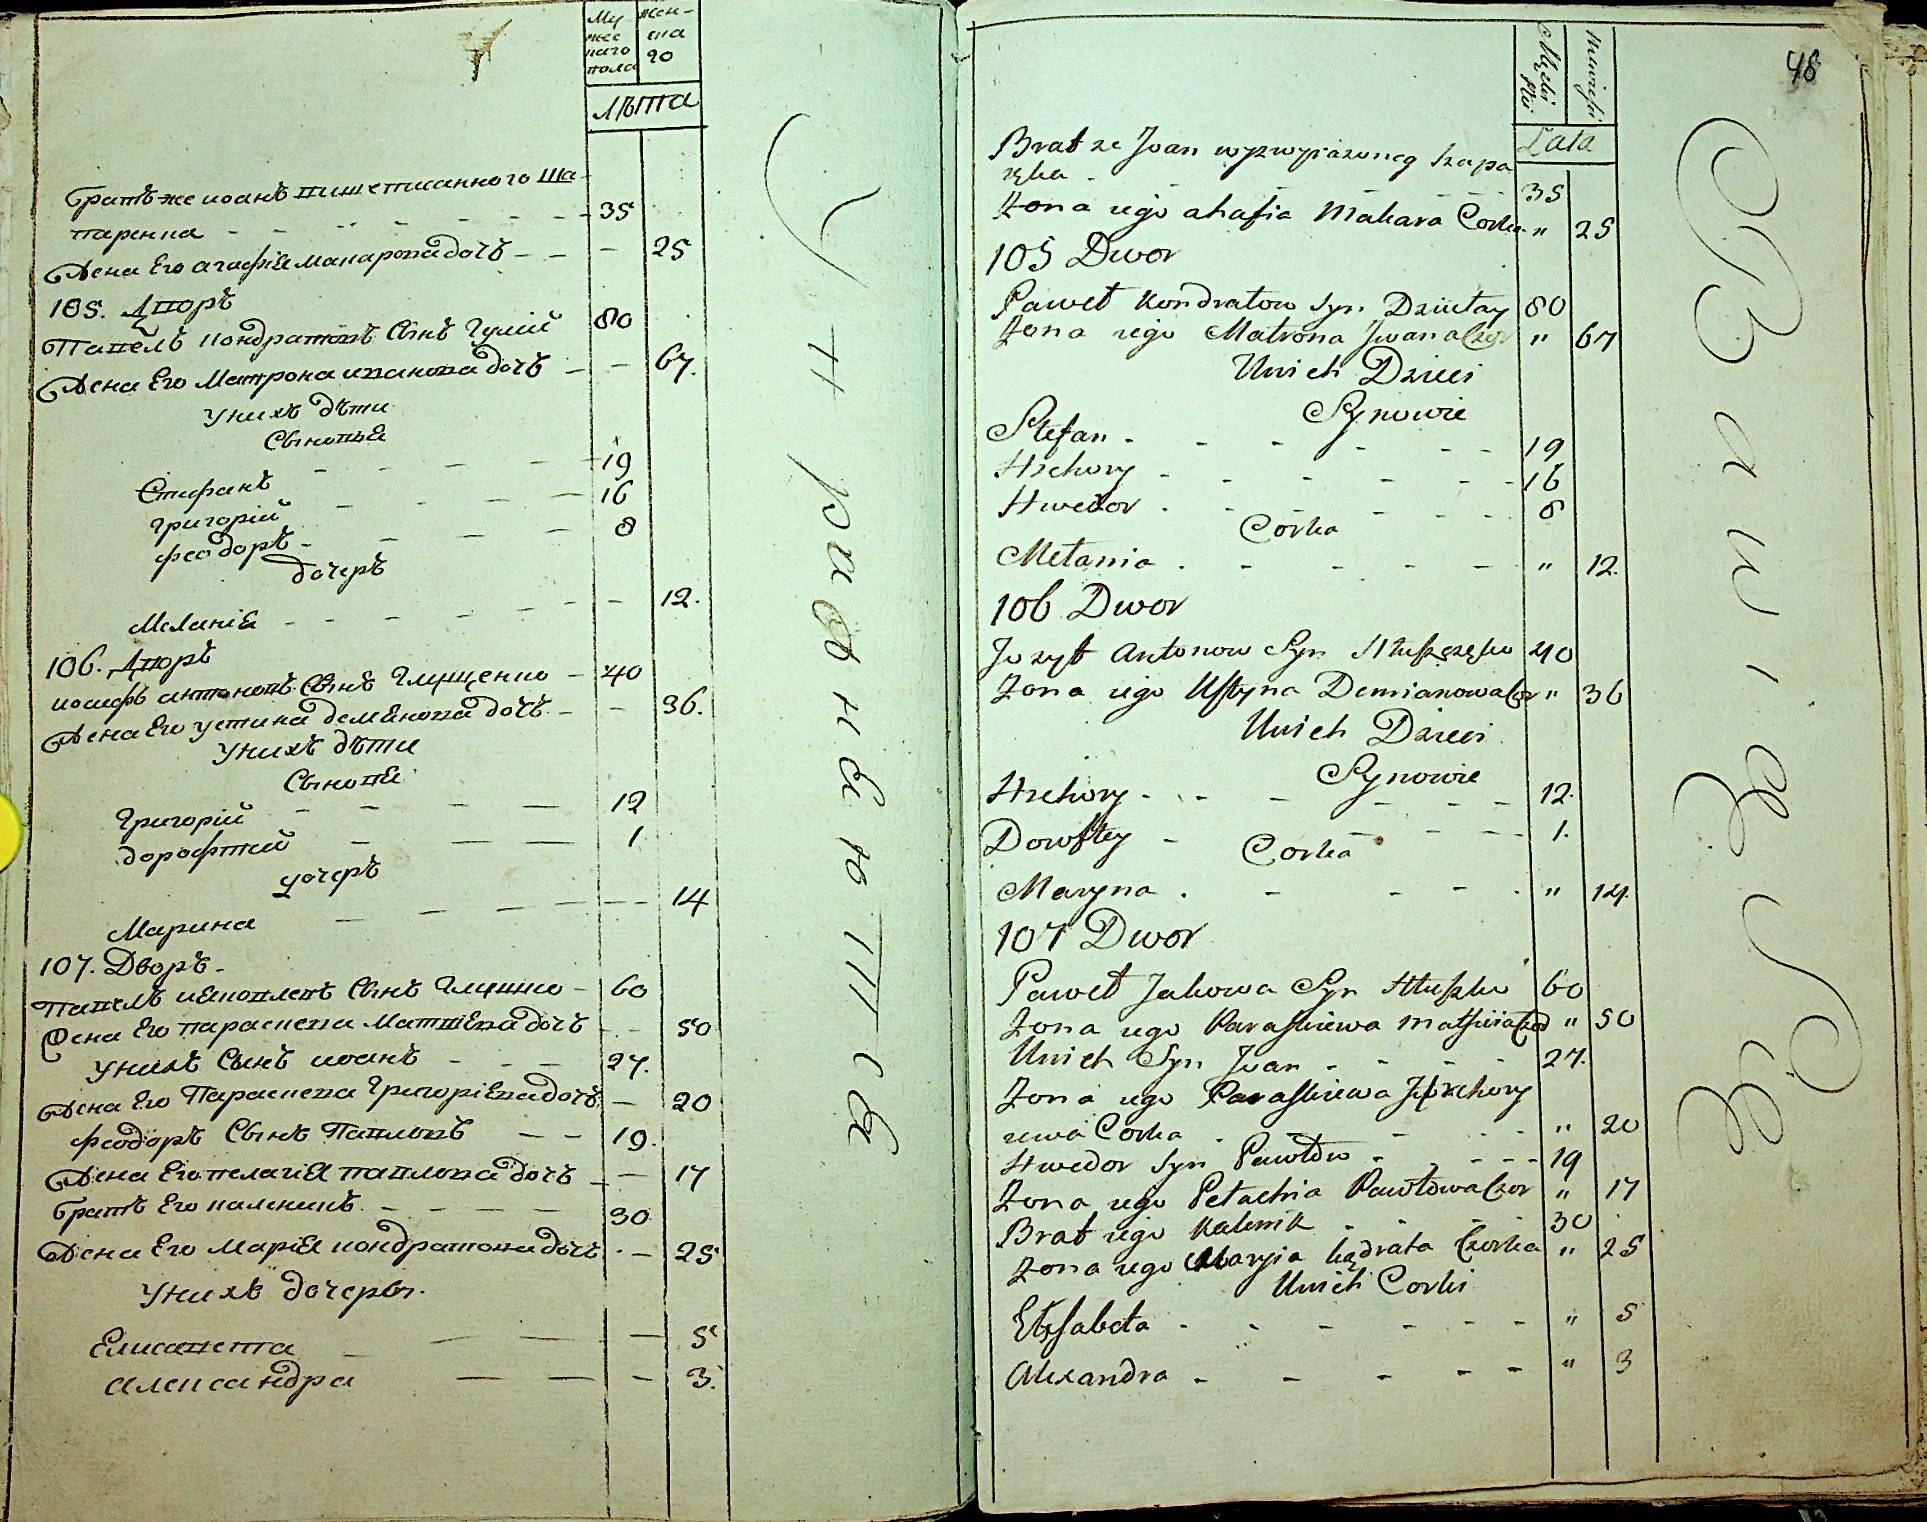 Му
жес
каго
пола
жен-
ска
го
лѣта
братъ же иоанъ вишеписанного Ша-
паренка - - - - 35
Жена Его агафіꙗ макарова дочъ - - - 25
105. Дворъ
Павелъ кондратовъ Сынъ Гулій 80
Жена Его Матрона иванова дочъ - - 67.
Унихъ дѣти
Сыновьꙗ
Стефанъ - - - - 19
григорій - - - - 16
феодоръ - - - - 8
дочеръ
Меланіꙗ - - - - - 12.
106. Дворъ
иосифъ антоновъ Сынъ Глущенко - 40
Жена Его устина демꙗнова дочъ - - 36.
Унихъ дѣти
Сыновꙗ
григорій - - - - 12
дорофтей - - - 1
дочеръ
Марина - - - - - 14
107. Дворъ -
Павелъ иꙗковлевъ Сынъ Глушко - 60
Жена Его параскева Матвѣева дочъ - - 50
унихъ Сынъ иоанъ - - 27.
Жена Его Параскева Григоріева дочъ - 20
феодоръ Сынъ Павловъ - - 19.
Жена Его пелагіꙗ павлова дочъ - - 17
братъ Его каленикъ - - - - 30
Жена Его Маріꙗ кондратова дочъ - - 25
Унихъ дочеры.
Елисавета - - - - 5
александра - - - - 3.
У Н р а в н ꙗ ю т с ꙗ
48
Męski
Płci
Niewiesci
Lata
Brat ze Jwan wyzwyrazoneg Szapa
ręka - - - - 35
Zona iego ahafia Makara Corka " 25
105 Dwor
Paweł Kondratow Syn Dziułay 80
Zona iego Matrona Jwana Czor " 67
Unich Dzieci
Synowie
Stefan - - - - - 19
Hrehory - - - - - 16
Hwedor - - - - - 8
Corka
Mełania - - - - - " 12.
106 Dwor
Jozyf Antonow Syn Hłuszczęko 40
Zona iego Ustyna Demianowa Cor " 36
Unich Dzieci
Synowie
Hrehory - - - - - 12.
Doroftey - - - - 1.
Corka
Maryna - - - - - " 14.
107 Dwor
Paweł Jakowa Syn Hłuszko 60
Zona iego Paraskiewa Matfiia Czor " 50
Unich Syn Jwan - - - - 27.
Zona iego Paraskiewa Hrehory
iewa Corka - - - - - " 20
Hwedor Syn Pawłow - - - - 19
Zona iego Pełachia Pawłowa Czor " 17
Brat iego Kalenik - - - - 30
Zona iego Maryia kądrata Czorka " 25
Unich Corki
Elzsabeta - - - - - - " 5
Alexandra - - - - - " 3